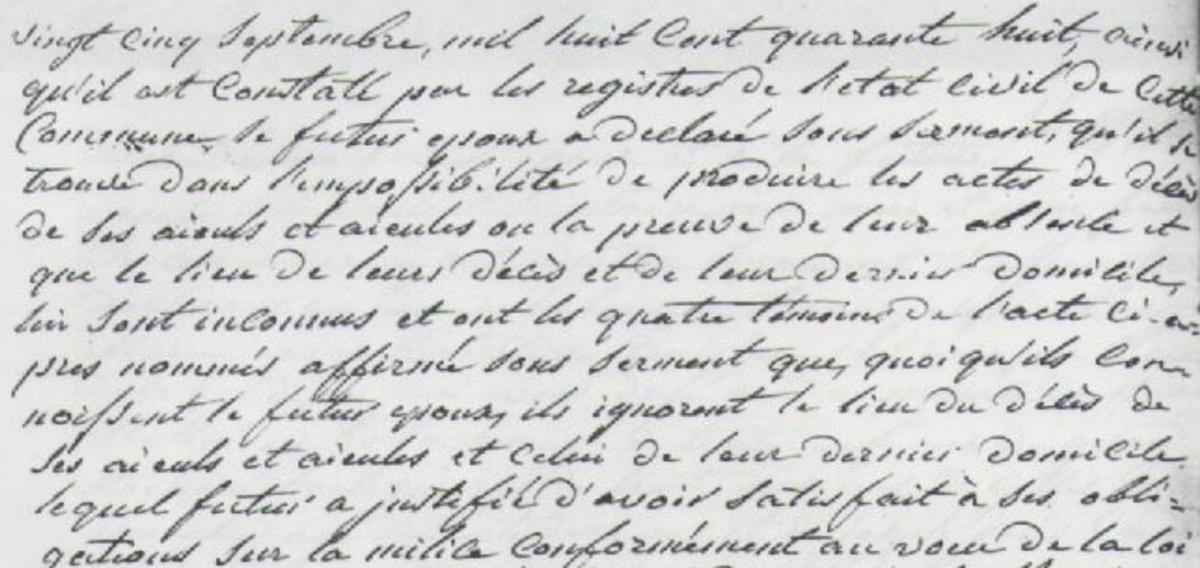 vingt cinq Septembre, mil huit Cent quarante huit, ainsi
qu'il est Constaté par les registres de l'etat Civil de Cette
Commune, le futur epoux a declaré sous serment, qu'il se
trouve dans l'impossibilité de produire les actes de décès
de ses aieuls et aieules ou la preuve de leur absence et
que le lieu de leurs décès et de leur dernier domicile,
lui sont inconnus et ont les quatre témoins de l'acte ci-a-
près nommés affirmé sous serment que, quoiqu'ils con-
noissent le futur epoux, ils ignorent le lieu du décès de
ses aieuls et aieules et celui de leur dernier domicile
lequel futur a justifié d'avoir satisfait à ses obli-
gations sur la milice Conformément au voeu de la loi